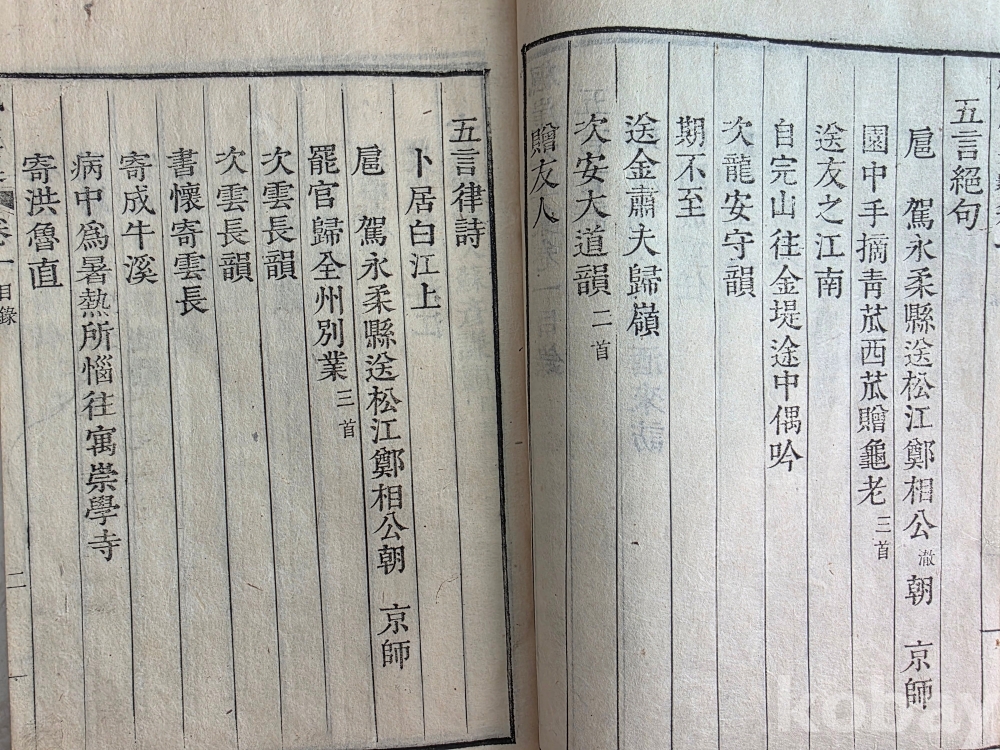 五言絕句
扈　駕永柔縣送松江鄭相公澈朝　京師
園中手摘靑苽西苽贈龜老三首
送友之江南
自完山往金堤途中偶吟
次龍安守韻
期不至
送金肅夫歸嶺
次安大道韻二首
贈友人
五言律詩
卜居白江上
扈　駕永柔縣送松江鄭相公朝　京師
罷官歸全州別業三首
次雲長韻
次雲長韻
書懷寄雲長
寄成牛溪
病中爲暑熱所惱往寓崇學寺
寄洪魯直
卷一
目錄
二
kobay